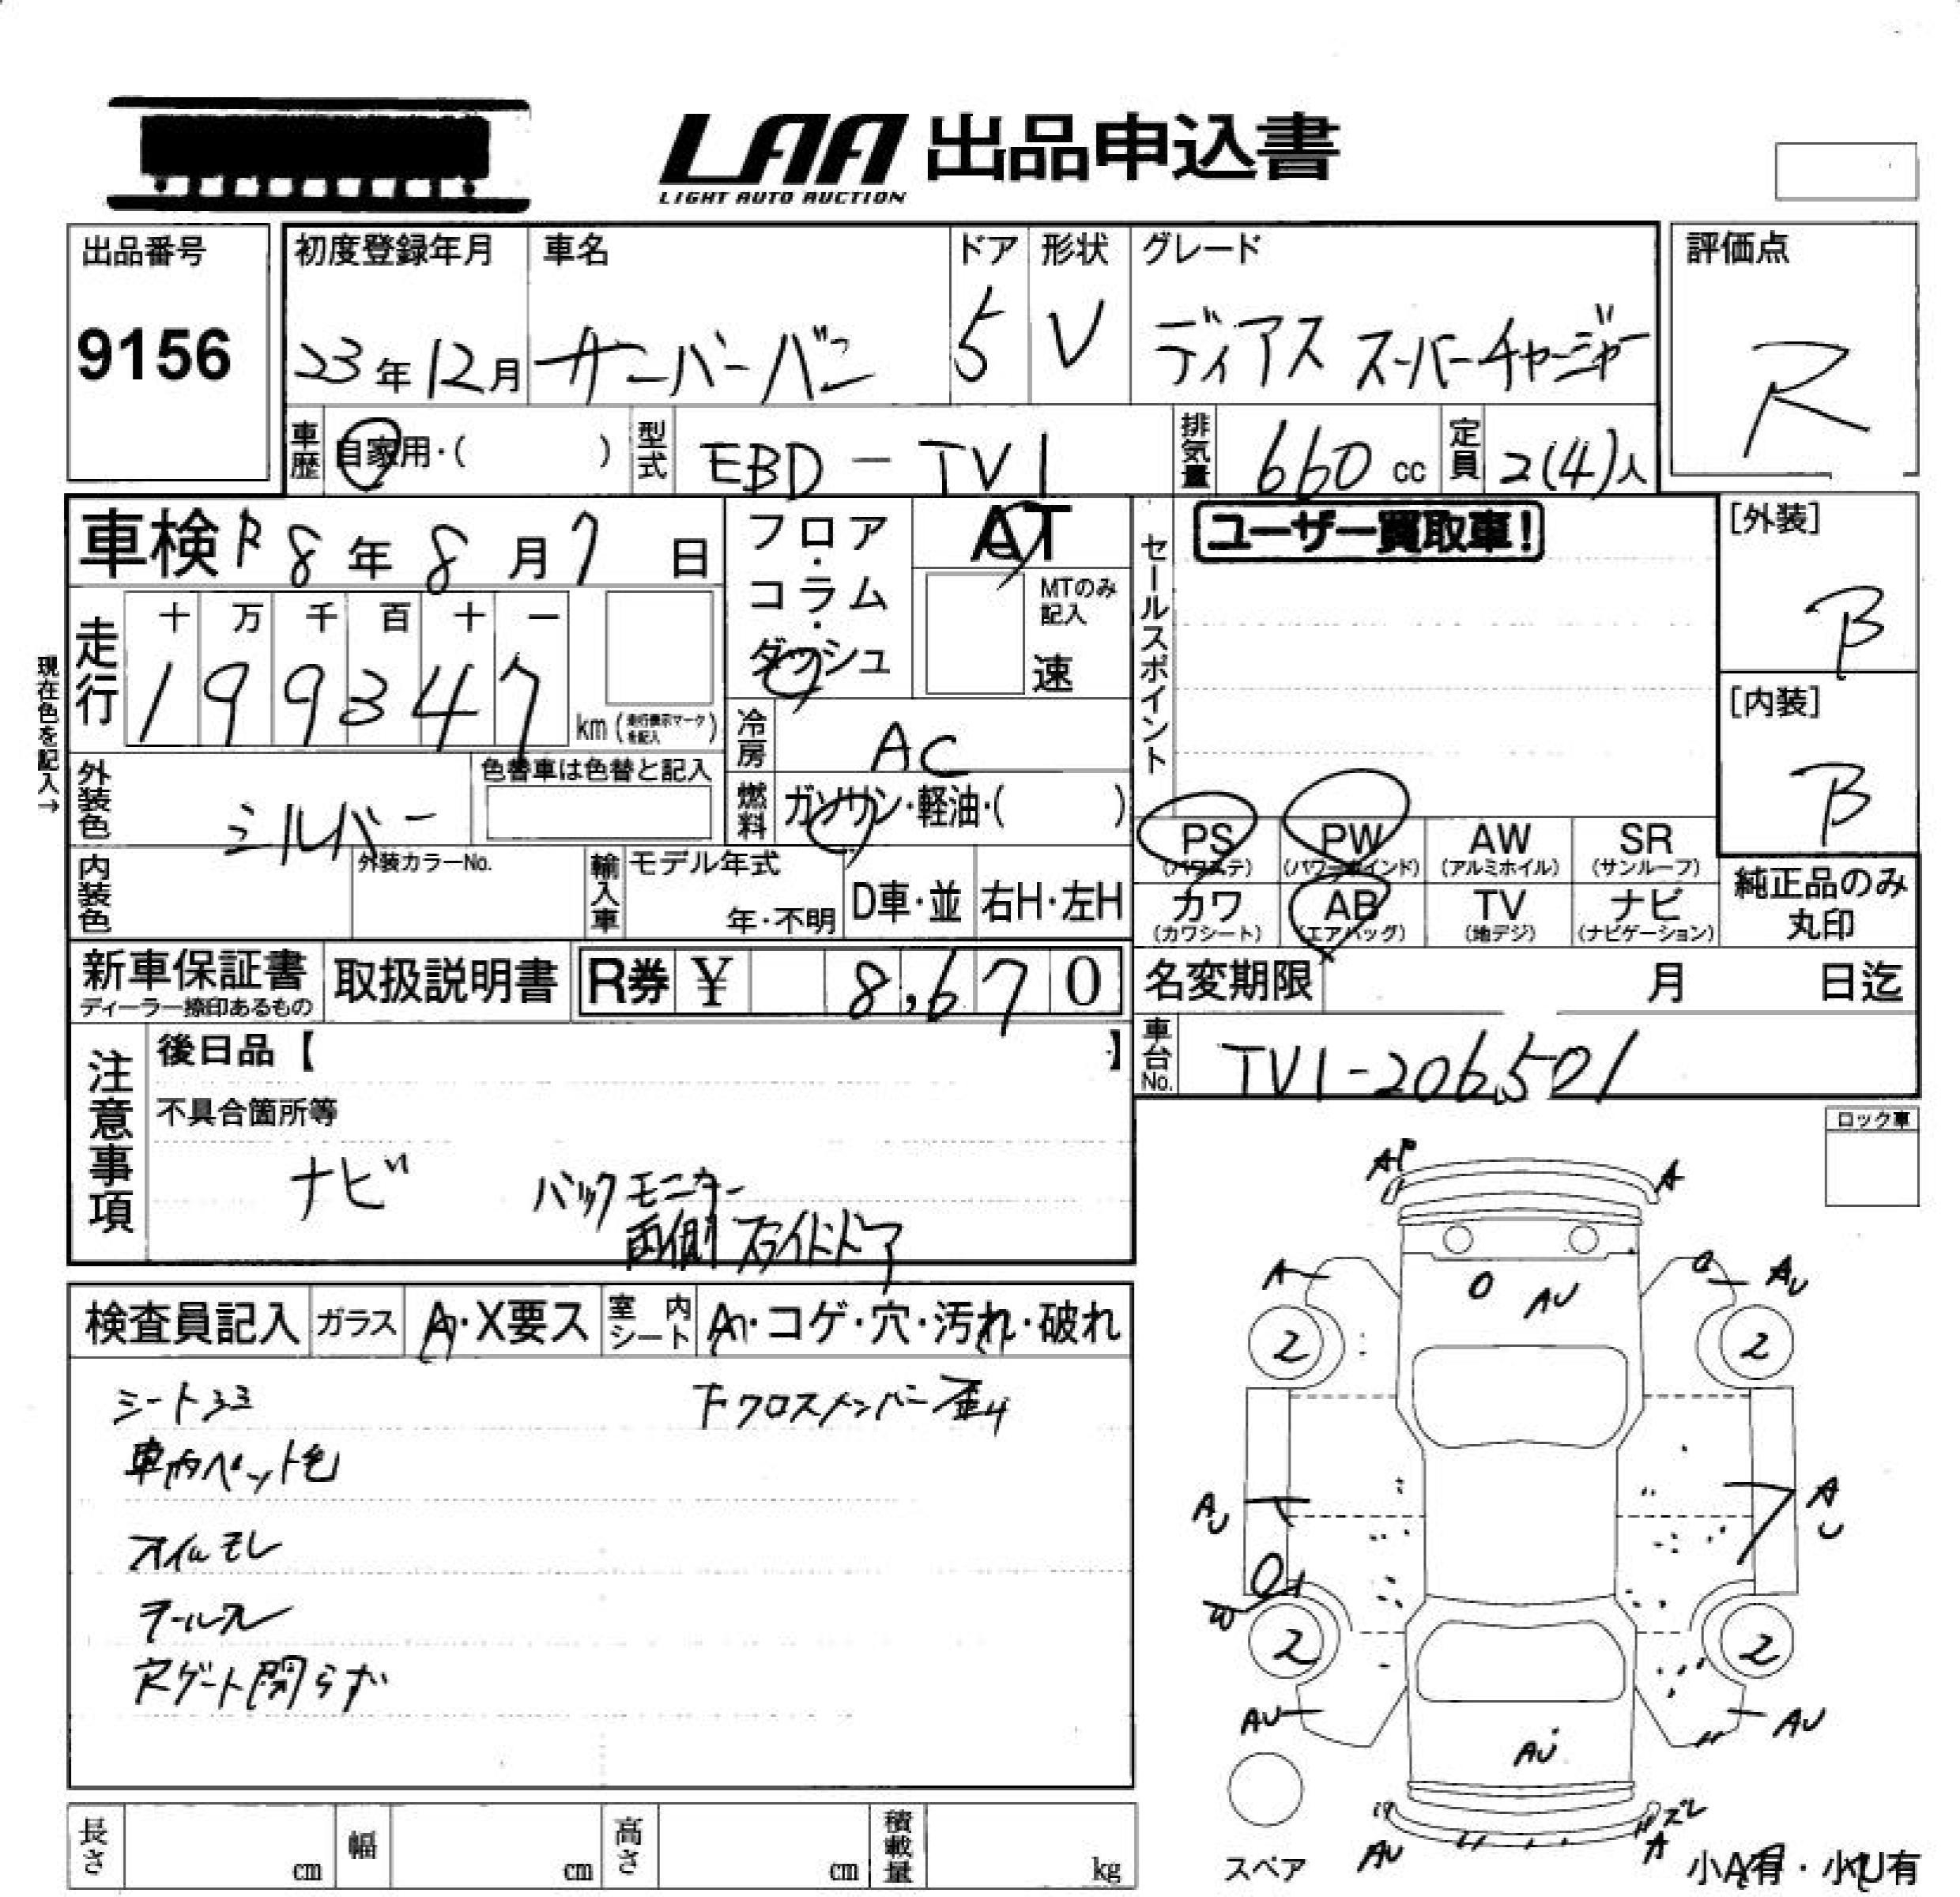 LAA 出品申込書
LIGHT AUTO AUCTION
出品番号
9156
初度登録年月
23年12月
車名
サンバーバン
ドア
5
形状
V
グレード
ディアス スーパーチャージャー
評価点
R
車歴
自家用・( )
型式
EBD-TV1
排気量
660 cc
定員
2(4)人
車検 R8年8月7日
フロア・コラム・ダッシュ
AT
MTのみ記入
速
セールスポイント
ユーザー買取車!
[外装]
B
[内装]
B
現在色を記入→
走行
十 万 千 百 十 一
199347
km (走行表示マークを記入)
冷房
AC
燃料
ガソリン・軽油・( )
外装色
シルバー
色替車は色替と記入
内装色
外装カラーNo.
輸入車
モデル年式
年・不明
D車・並
右H・左H
PS
(パワステ)
PW
(パワーウインド)
AW
(アルミホイル)
SR
(サンルーフ)
カワ
(カワシート)
AB
(エアバッグ)
TV
(地デジ)
ナビ
(ナビゲーション)
純正品のみ
丸印
新車保証書
ディーラー捺印あるもの
取扱説明書
R券 ¥ 8,670
名変期限 月 日迄
車台No.
TV1-206501
注意事項
後日品【 】
不具合箇所等
ナビ バックモニター
両側スライドドア
ロック車
検査員記入
ガラス
A・X要ス
室内シート
A・コゲ・穴・汚れ・破れ
シートヨゴレ
下クロスメンバー歪み
オイルモレ
AP
A
A
AU
AU
2
2
AU
AU
W
2
2
AU
AU
AU
AU
ズレ
A
スペア
小A有・小U有
長さ cm
幅 cm
高さ cm
積載量 kg